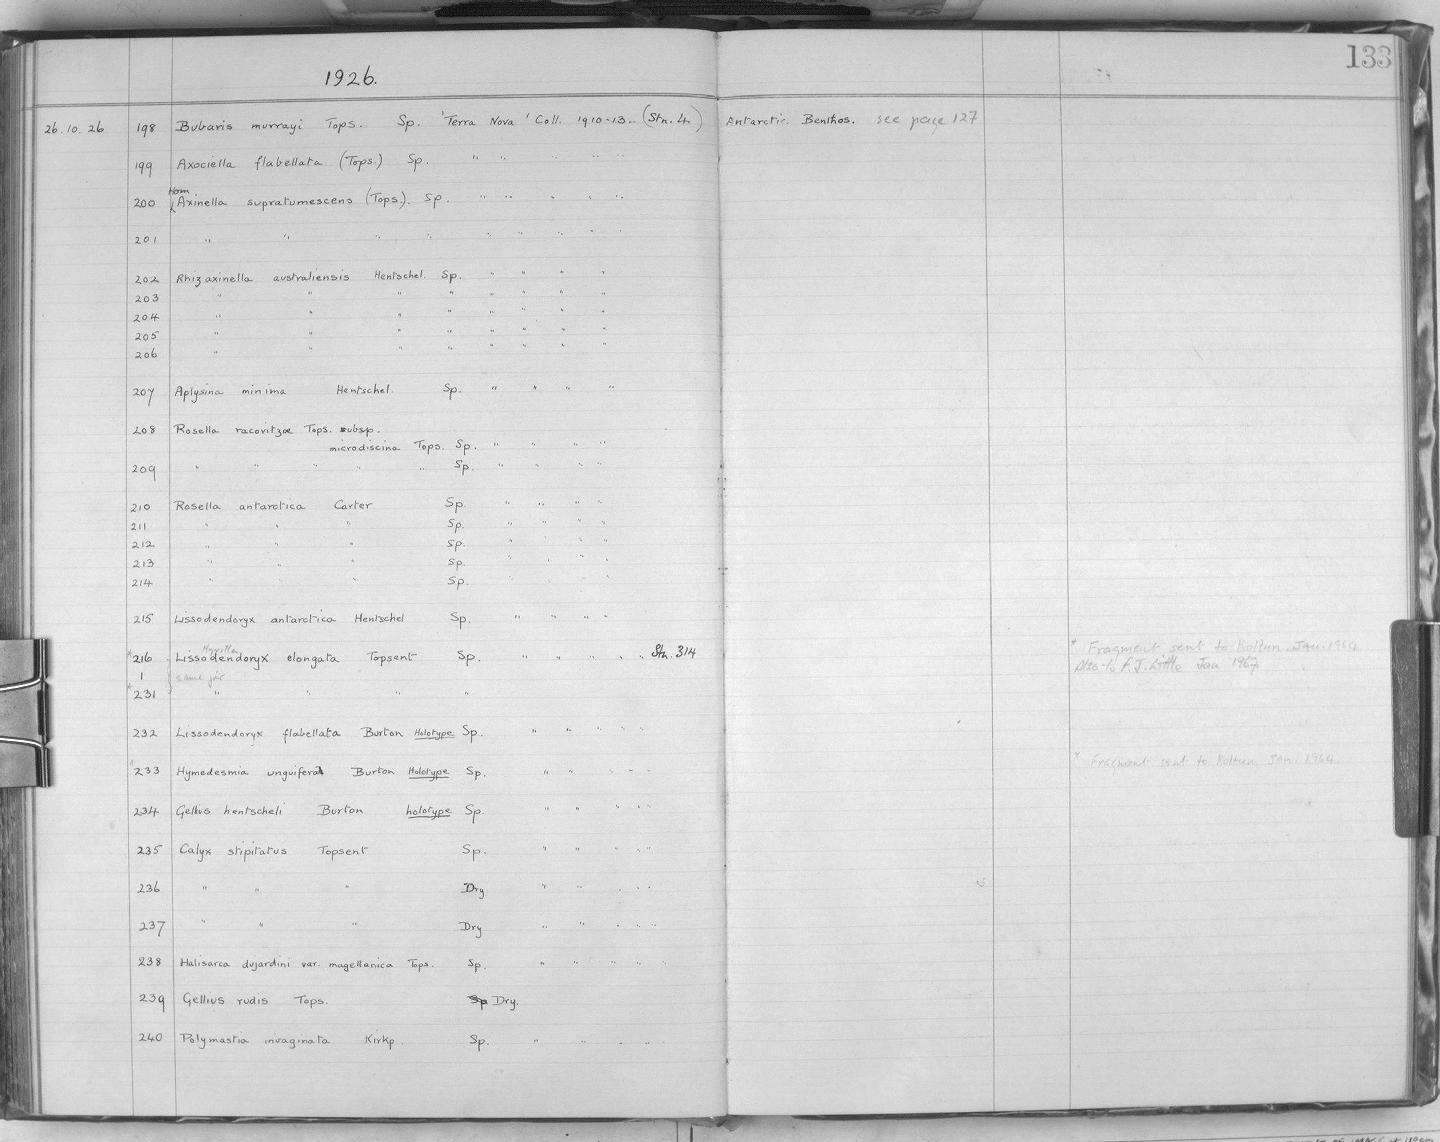 133
1926.
26.10.26 198 Bubaris murrayi Tops. Sp. 'Terra Nova' Coll. 1910-13. (Stn. 4.) Antarctic. Benthos. see page 127
199 Axociella flabellata (Tops.) Sp. " " " " "
Hom
200 Axinella supratumescens (Tops.). Sp. " " " " "
201 " " " " " " " " "
202 Rhizaxinella australiensis Hentschel. Sp. " " " "
203 " " " " " " " "
204 " " " " " " " "
205 " " " " " " " "
206 " " " " " " " "
207 Aplysina minima Hentschel. Sp. " " " "
208 Rosella racovitzae Tops. subsp.
microdiscina Tops. Sp. " " " "
209 " " " " " Sp. " " " "
210 Rosella antarctica Carter Sp. " " " "
211 " " " Sp. " " " "
212 " " " Sp. " " " "
213 " " " Sp. " " " "
214 " " " Sp. " " " "
215 Lissodendoryx antarctica Hentschel Sp. " " " "
* 216 Lissodendoryx elongata Topsent Sp. " " " " " Stn. 314 * Fragment sent to Koltun Jan. 1964
| same jar Also to F.J. Little Jan 1967
* 231 " " " "
232 Lissodendoryx flabellata Burton Holotype Sp. " " " " "
* 233 Hymedesmia unguifera Burton Holotype Sp. " " " " " * Fragment sent to Koltun Jan. 1964.
234 Gellius hentscheli Burton holotype Sp. " " " " "
235 Calyx stipitatus Topsent Sp. " " " " "
236 " " " Dry " " " " "
237 " " " Dry " " " " "
238 Halisarca dujardini var. magellanica Tops. Sp. " " " " "
239 Gellius rudis Tops. Sp Dry.
240 Polymastia invaginata Kirkp. Sp. " " " " "